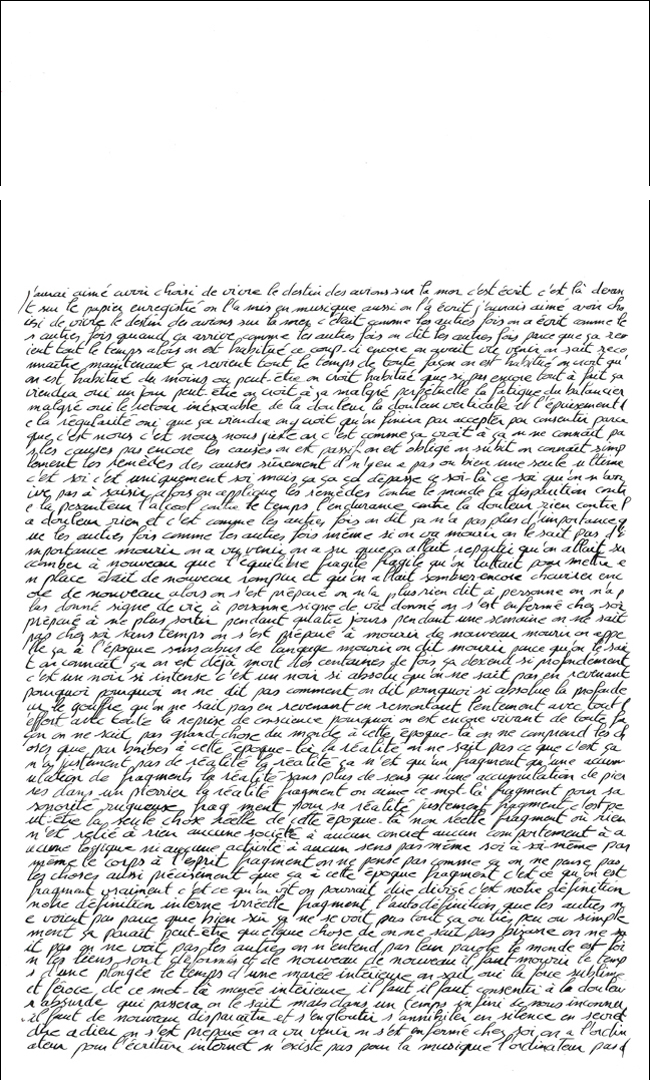 j'aurai aimé avoir choisi de vivre le destin des avions sur la mer c'est écrit c'est là devan
t sur le papier enregistré on l'a mis en musique aussi on l'a écrit j'aurais aimé avoir cho
isi de vivre le destin des avions sur la mer c'était comme les autres fois on a écrit comme le
s autres fois quand ça arrive comme les autres fois on dit les autres fois parce que ça rev
ient tout le temps alors on est habitué ce coup-ci encore on avait vu venir on sait reco
nnaître maintenant ça revient tout le temps de toute façon on est habitué on croit qu'
on est habitué du moins ou peut-être on croit habitué que si pas encore tout à fait ça
viendra oui un jour peut être on croit à ça malgré perpétuelle la fatigue du balancier
malgré oui le retour inexorable de la douleur la douleur verticale et l'épuisement d
e la régularité oui que ça viendra on y croit qu'on finira par accepter par consentir parce
que c'est nous c'est nous nous-même on c'est comme ça croit à ça on ne connait pa
s les causes pas encore les causes on est passif on est obligé on subit on connait simp
lement les remèdes des causes sûrement il n'y en a pas ou bien une seule ultime
c'est soi c'est uniquement soi mais ça ça ça dépasse ce soi-là ce soi qu'on n'arr
ive pas à saisir alors on applique les remèdes contre le monde la disparition contr
e la pesanteur l'alcool contre le temps l'endurance contre la douleur rien contre l
a douleur rien et c'est comme les autres fois on dit ça n'a pas plus d'importance q
ue les autres fois comme les autres fois même si on va mourir on le sait pas d'i
mportance mourir on a vu venir on a su que ça allait repartir qu'on allait su
ccomber à nouveau que l'équilibre fragile fragile qu'on luttait pour mettre e
n place était de nouveau rompu et qu'on allait sombrer encore chavirer enc
ore de nouveau alors on s'est préparé on n'a plus rien dit à personne on n'a p
lus donné signe de vie à personne signe de vie donné on s'est enfermé chez soi
préparé à ne plus sortir pendant quatre jours pendant une semaine on ne sait
pas chez soi sans temps on s'est préparé à mourir de nouveau mourir on appe
lle ça à l'époque sans abus de langage mourir on dit mourir parce qu'on le sai
t on connait ça on est déjà mort des centaines de fois ça descend si profondément
c'est un noir si intense c'est un noir si absolu qu'on ne sait pas en revenant
pourquoi pourquoi on ne dit pas comment on dit pourquoi si absolue la profonde
ur le gouffre qu'on ne sait pas en revenant en remontant lentement avec tout l'
effort avec toute la reprise de conscience pourquoi on est encore vivant de toute fa
çon on ne sait pas grand-chose du monde à cette époque-là on ne comprend les ch
oses que par bribes à cette époque-là la réalité on ne sait pas ce que c'est ça
n'a justement pas de réalité la réalité ça n'est qu'un fragment qu'une accum
ulation de fragments la réalité sans plus de sens qu'une accumulation de pier
res dans un pierrier la réalité fragment on aime ce mot-là fragment pour sa
sonorité rugueuse frag ment pour sa réalité justement fragment c'est pe
ut-être la seule chose réelle de cette époque-là non réelle fragment où rien
n'est relié à rien aucune société à aucun concret aucun comportement à a
ucune logique ni aucune activité à aucun sens pas même soi à soi-même pas
même le corps à l'esprit fragment on ne pense pas comme ça on ne pense pas
les choses aussi précisément que ça à cette époque fragment c'est ce qu'on est
fragment vraiment c'est ce qu'on vit on pourrait dire divisé c'est notre définition
notre définition interne irréelle fragment l'autodéfinition que les autres n
e voient pas parce que bien sûr ça ne se voit pas tout ça ou très peu ou simple
ment ça parait peut-être quelque chose de on ne sait pas bizarre on ne sa
it pas on ne voit pas les autres on n'entend pas leur parole le monde est loi
n les liens sont déformés et de nouveau de nouveau il faut mourir le temp
s d'une plongée le temps d'une marée intérieure on sait oui la force sublime
et féroce de ce mot-là marée intérieure il faut il faut consentir à la douleur
l'absurde qui passera on le sait mais dans un temps infini de nous inconnu
il faut de nouveau disparaître et s'engloutir s'annihiler en silence en secret
dire adieu on s'est préparé on a vu venir on s'est enfermé chez soi on a l'ordin
ateur pour l'écriture internet n'existe pas pour la musique l'ordinateur pas d